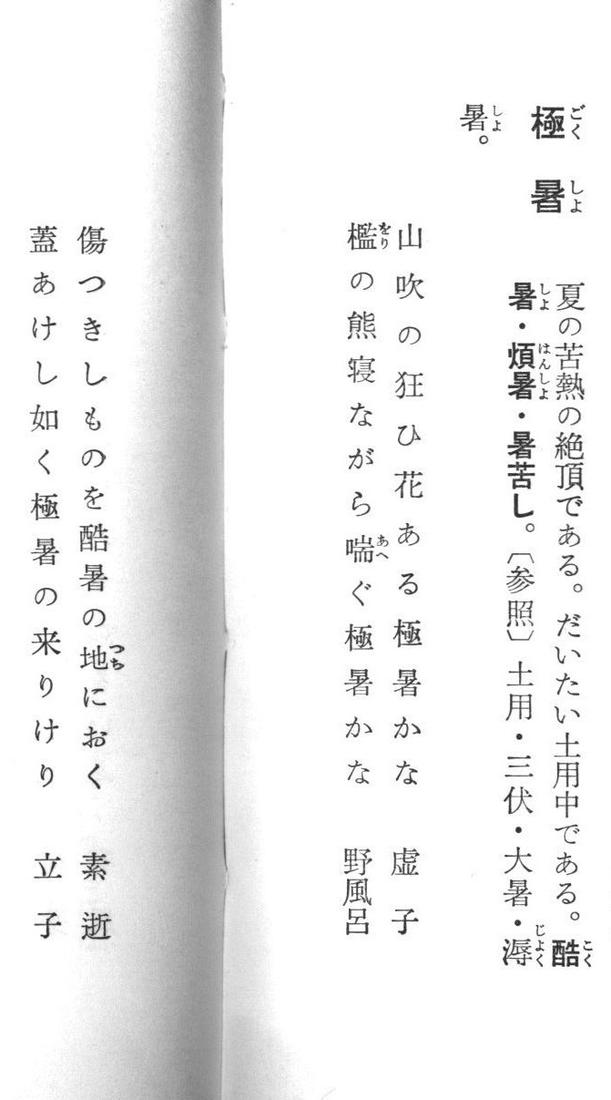 極暑
夏の苦熱の絶頂である。だいたい土用中である。酷
暑・煩暑・暑苦し。〔参照〕土用・三伏・大暑・溽
暑。
山吹の狂ひ花ある極暑かな　虚子
檻の熊寝ながら喘ぐ極暑かな　野風呂
傷つきしものを酷暑の地におく　素逝
蓋あけし如く極暑の来りけり　立子